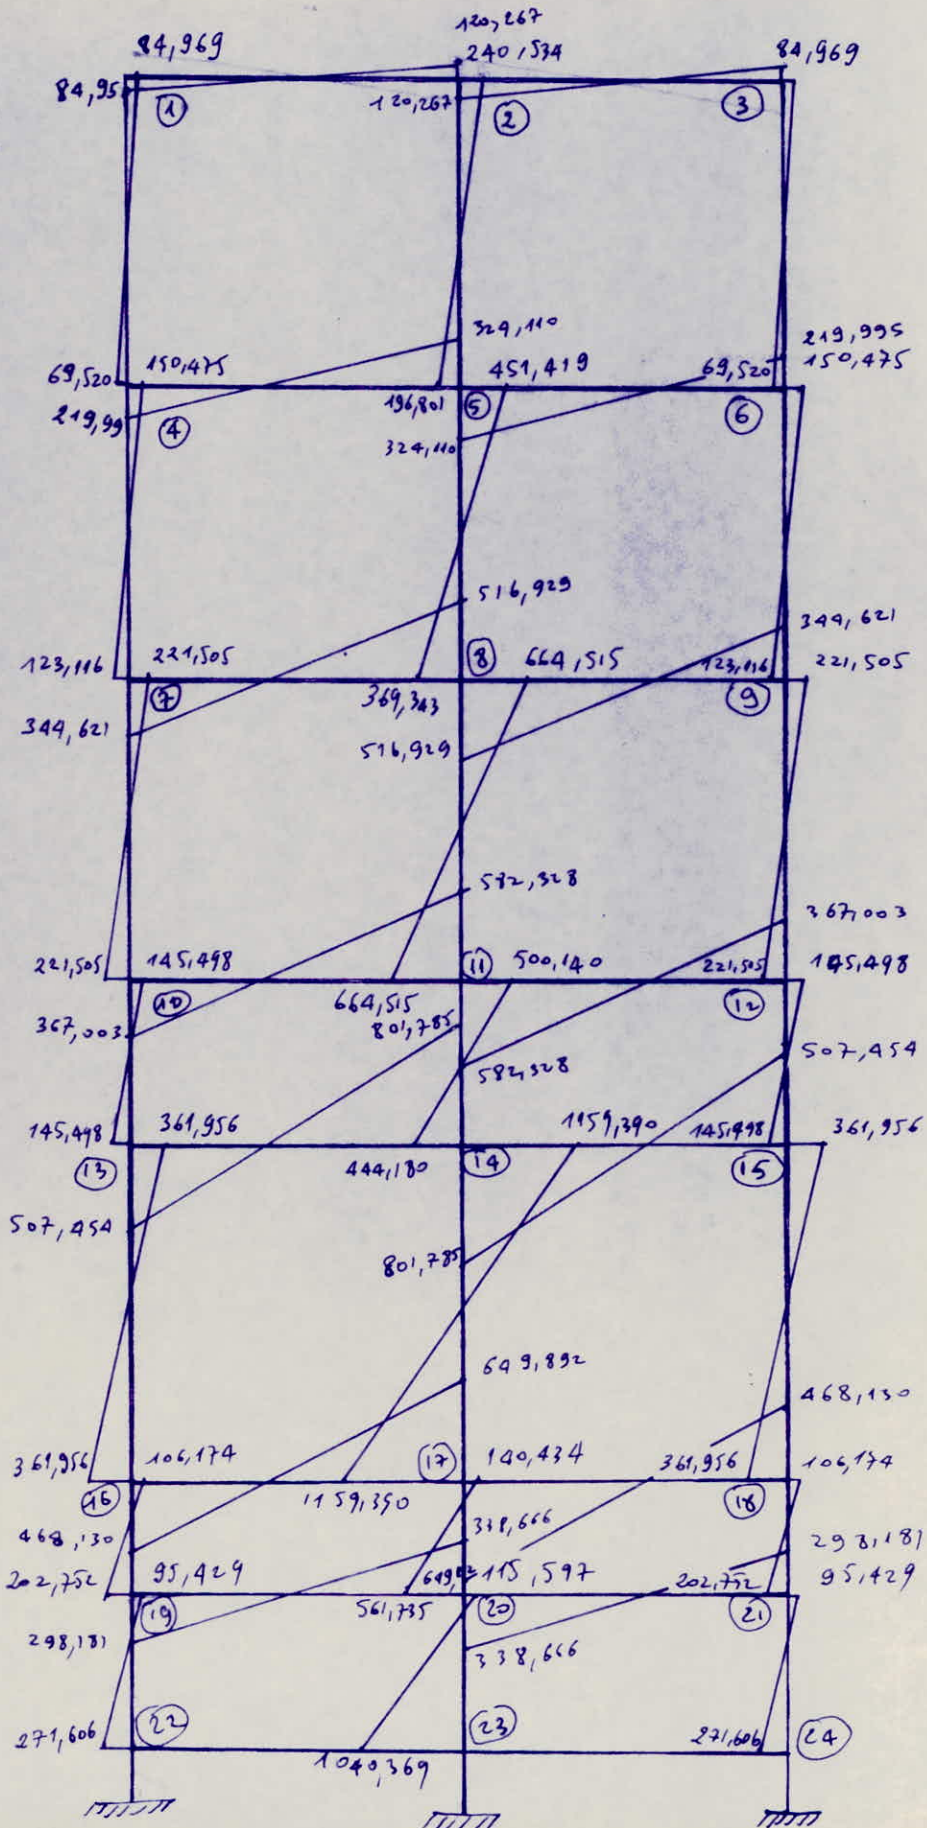 120,267
84,969 240,534 84,969
84,95 120,267
1 2 3
324,110 219,995
69,520 150,475 451,419 69,520 150,475
219,99 4 196,801 5 6
324,110
516,929 344,621
123,116 221,505 8 664,515 123,116 221,505
7 369,343 9
344,621 516,929
582,328 367,003
221,505 145,498 11 500,140 221,505 145,498
10 664,515 12
367,003 801,785
582,328 507,454
145,498 361,956 1159,390 145,498 361,956
13 444,180 14 15
507,454 801,785
649,892 468,130
361,956 106,174 17 140,434 361,956 106,174
16 1159,390 18
468,130 338,666 298,181
202,752 95,429 115,597 202,752 95,429
19 561,735 20 21
298,181 338,666
22 23 24
271,606 271,606
1040,369